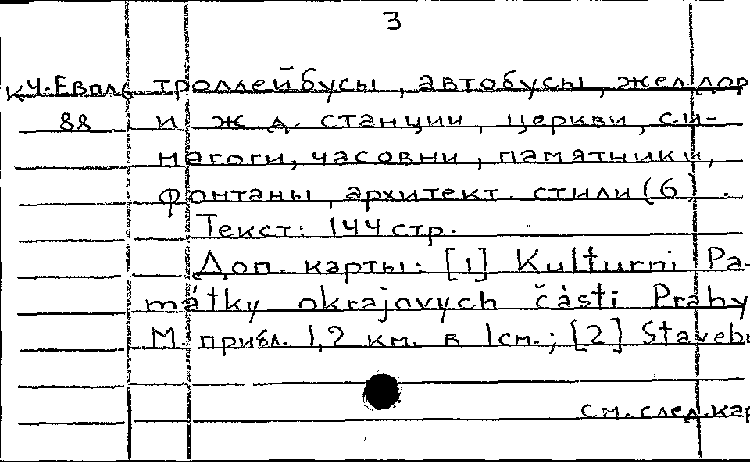 3
троллейбусы, автобусы, жел дор
88 и ж. д. станции, церкви, си-
нагоги, часовни, памятники,
фонтаны, архитект. стили (6).
Текст: 144 стр.
Доп. карты: [1] Kulturni Pa-
mátky okrajovych části Prahy
М. прибл. 1,2 км. в 1см.; [2] Staveb
см. след. кар